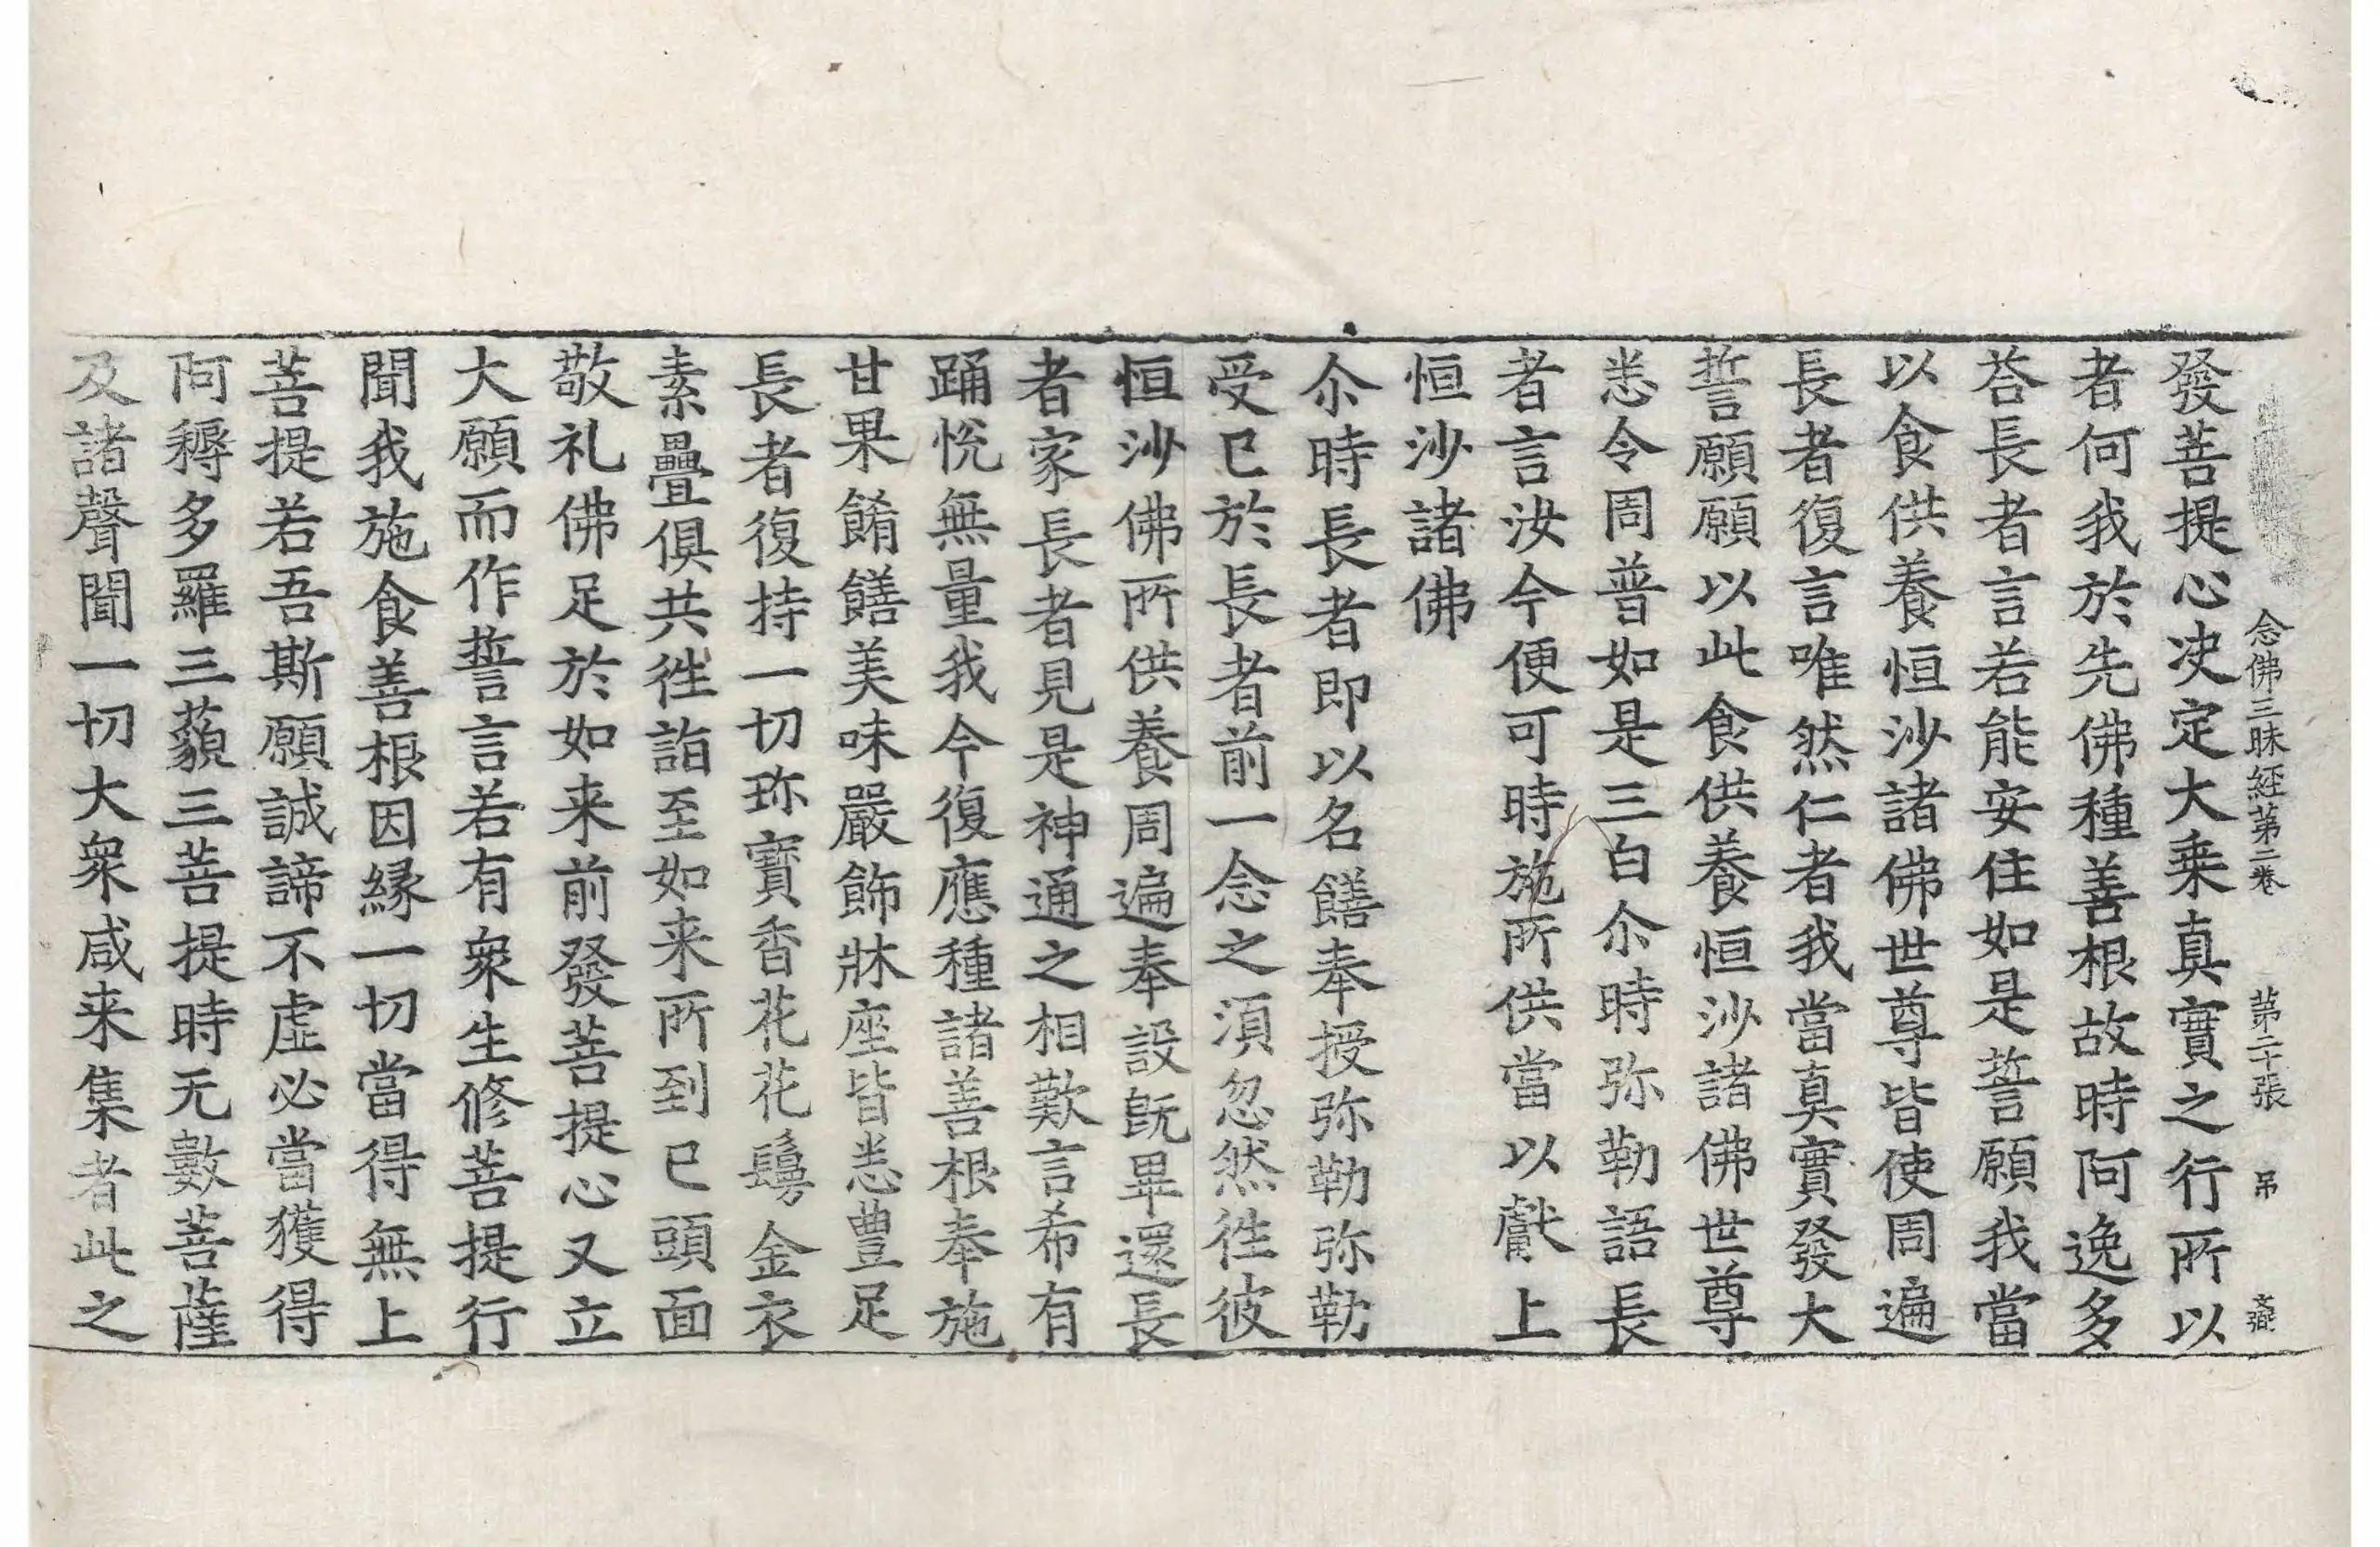 念佛三昧經第二卷　第二十張　吊
發菩提心决定大乗真實之行所以
者何我於先佛種善根故時阿逸多
荅長者言若能安住如是誓願我當
以食供養恒沙諸佛世尊皆使周遍
長者復言唯然仁者我當真實發大
誓願願以此食供養恒沙諸佛世尊
悉令周普如是三白尒時弥勒語長
者言汝今便可時施所供當以獻上
恒沙諸佛
尒時長者即以名饍奉授弥勒弥勒
受已於長者前一念之湏忽然徃彼
恒沙佛所供養周遍奉設旣畢還長
者家長者見是神通之相歎言希有
踊恱無量我今復應種諸善根奉施
甘果餚饍美味嚴飾牀座皆悉豊足
長者復持一切珎寶香花花鬘金衣
素疊俱共徃詣至如来所到已頭面
敬礼佛足於如来前發菩提心又立
大願而作誓言若有衆生修菩提行
聞我施食善根因縁一切當得無上
菩提若吾斯願誠諦不虛必當獲得
阿耨多羅三藐三菩提時无數菩薩
及諸聲聞一切大衆咸来集者此之